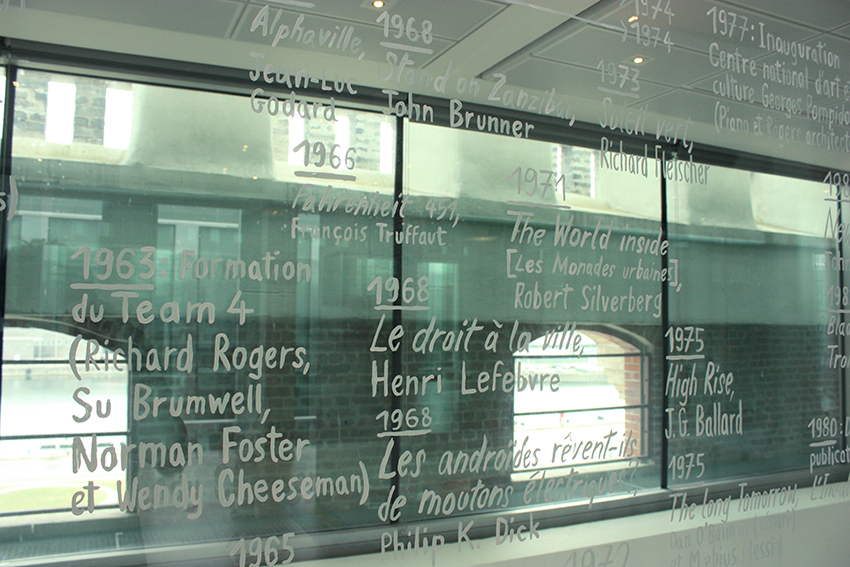 Alphaville,
Jean-Luc
Godard
1966
Fahrenheit 451,
François Truffaut
1963: Formation
du Team 4
(Richard Rogers,
Su Brumwell,
Norman Foster
et Wendy Cheeseman)
1965
1968
Stand on Zanzibar,
John Brunner
1968
Le droit à la ville,
Henri Lefebvre
1968
Les androïdes rêvent-ils
de moutons électriques?,
Philip K. Dick
1974
1974
1973
Soleil vert,
Richard Fleischer
1971
The World inside
[Les Monades urbaines],
Robert Silverberg
1972
1975
High Rise,
J.G. Ballard
1975
The long Tomorrow,
Dan O'Bannon
et Mœbius
1977: Inauguration
Centre national d'art e
culture Georges Pompido
(Piano et Rogers architect
1980: 
publicat